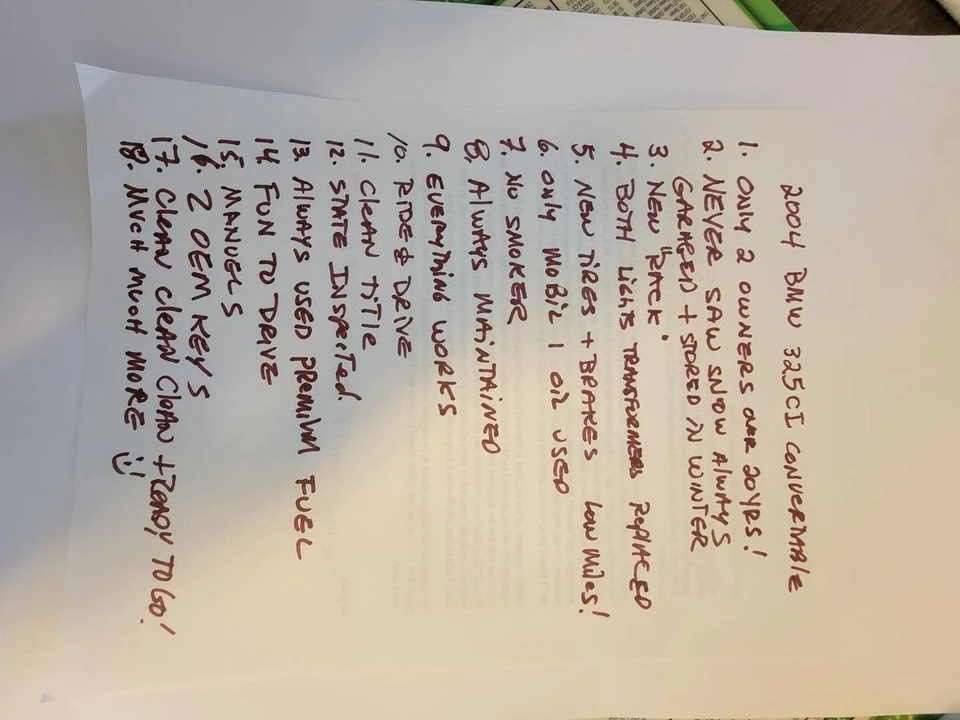 2004 BMW 325CI CONVERTABLE
1. ONLY 2 OWNERS OVER 20YRS!
2. NEVER SAW SNOW ALWAYS
GARAGED + STORED IN WINTER
3. NEW "RACK"
4. BOTH LIGHTS TRANSFORMERS REPLACED
5. NEW TIRES + BRAKES LOW MILES!
6. ONLY MOBIL 1 OIL USED
7. NO SMOKER
8. ALWAYS MAINTAINED
9. EVERYTHING WORKS
10. RIDE & DRIVE
11. CLEAN TITLE
12. STATE INSPECTED
13. ALWAYS USED PREMIUM FUEL
14. FUN TO DRIVE
15. MANUELS
16. 2 OEM KEYS
17. CLEAN CLEAN CLEAN + READY TO GO!
18. MUCH MUCH MORE